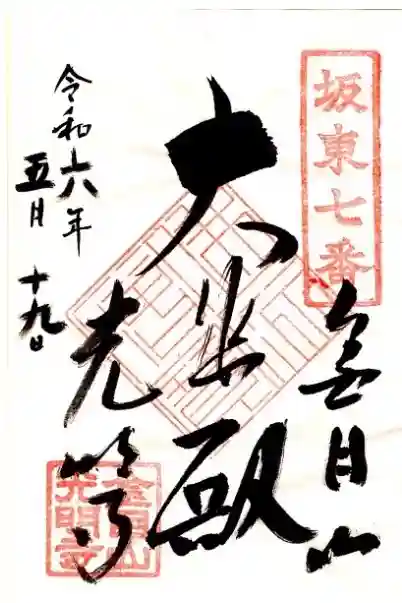 坂東七番
金目山
大悲殿
光明寺
令和六年
五月十九日
金目山
光明寺